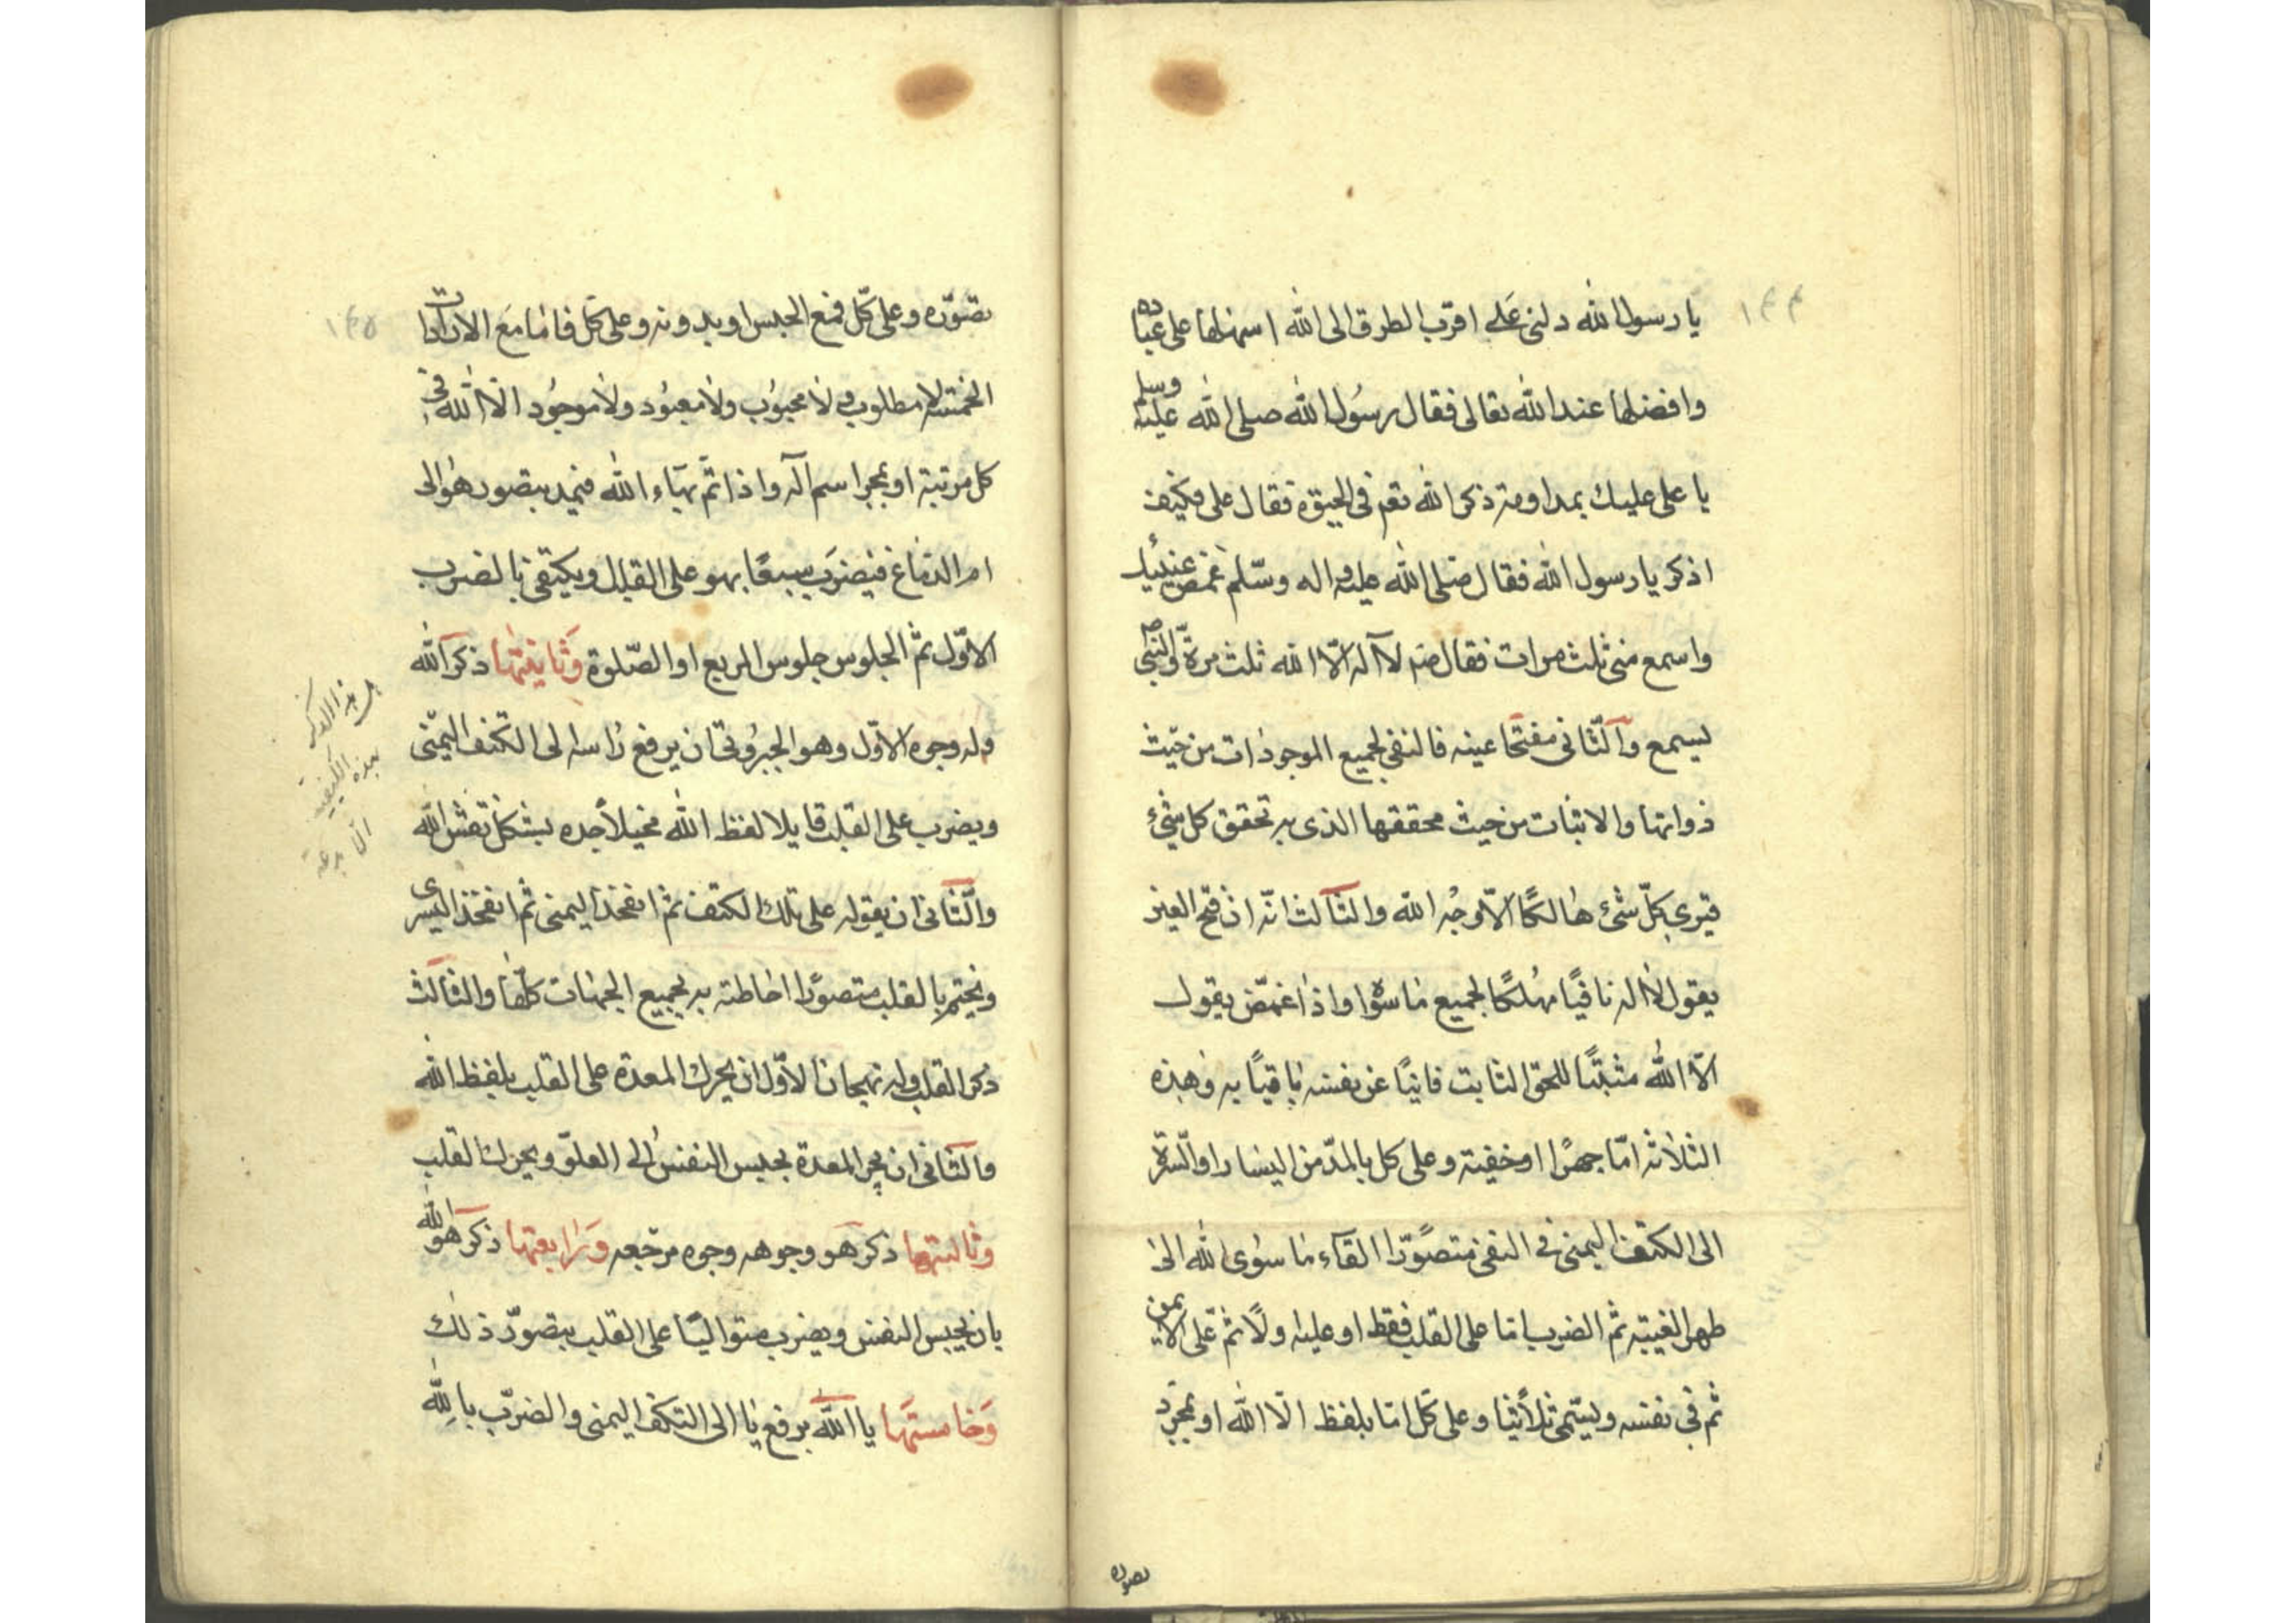 ١٤٤
يا رسول الله دلنى على اقرب الطرق الى الله اسهلها على عباده
وافضلها عند الله تعالى فقال رسول الله صلى الله عليه وسلم
يا على عليك بمداومة ذكر الله تعم فى الخلوة فقال على فكيف
اذكر يا رسول الله فقال صلى الله عليه واله وسلم غمض عينيك
واسمع منى ثلث مرات فقال صم لا آله الّا الله ثلث مرة والنبى ص
ليسمع والثّانى مفتحا عينه فالنفى لجميع الموجودات من حيث
ذواتها والاثبات من حيث محققها الذى به تحقق كل شئ
فيرى كلّ شئ هالكا الّا وجه الله والثالث انّه اذ فتح العين
يقول لا اله نافيًا مهلكًا لجميع ما سواه واذا غمّض يقول
الّا الله مثبتًا للحق الثابت فانيًا عن نفسه باقيًا به وهذه
الثلاثة امّا جهرًا او خفية وعلى كل بالمدّ من اليسار او السّرة
الى الكتف اليمنى فى النفى متصوّرًا القاء ما سوى الله الى
ظهر الغيبة ثم الضرب اما على القلب فقط او عليه ولًا ثم على الايمن
ثم فى نفسه ويسمّى ثلاثيا وعلى كل اما بلفظ الّا الله او بمجرد
تصوره
١٤٥
تصوّره وعلى كلّ فمع الحبس او بدونه وعلى كل فاما مع الارادات
الخمسة لا مطلوب ولا محبوب ولا معبود ولا موجود الّا الله فى
كل مرتبة او بمجرا سم آله واذا تمّ بهاء الله فيمد بتصور هو الى
ام الدماغ فيضرب سبعًا بهو على القلب ويكتفى بالضرب
الاوّل ثم الجلوس جلوس المربع او الصّلوة وثانيتها ذكر الله
وله وجوه الاوّل وهو الجبروتى ان يرفع راسه الى الكتف اليمنى
ويضرب على القلب قايلا لفظ الله مخيلًا جده بشكل نقش الله
والثّانى ان يقوله على تلك الكتف ثم الفخذ اليمنى ثم الفخذ اليسرى
ويختم بالقلب متصورًا احاطته به بجميع الجهات كلّها والثالث
ذكر القلب وله نهجان الاوّل ان يحرك المعدة على القلب بلفظ الله
والثانى ان يجر المعدة بحبس النفس الى العلوّ ويحرك القلب
وثالثتها ذكر هو وجوهه وجوه مرجعه ورابعتها ذكر هو الله
بان يحبس النفس ويضرب متواليًا على القلب بتصوّر ذلك
وخامستها يا الله برفع يا الى الكتف اليمنى والضرّب بالله
هذا الذكر
بهذه الكيفية